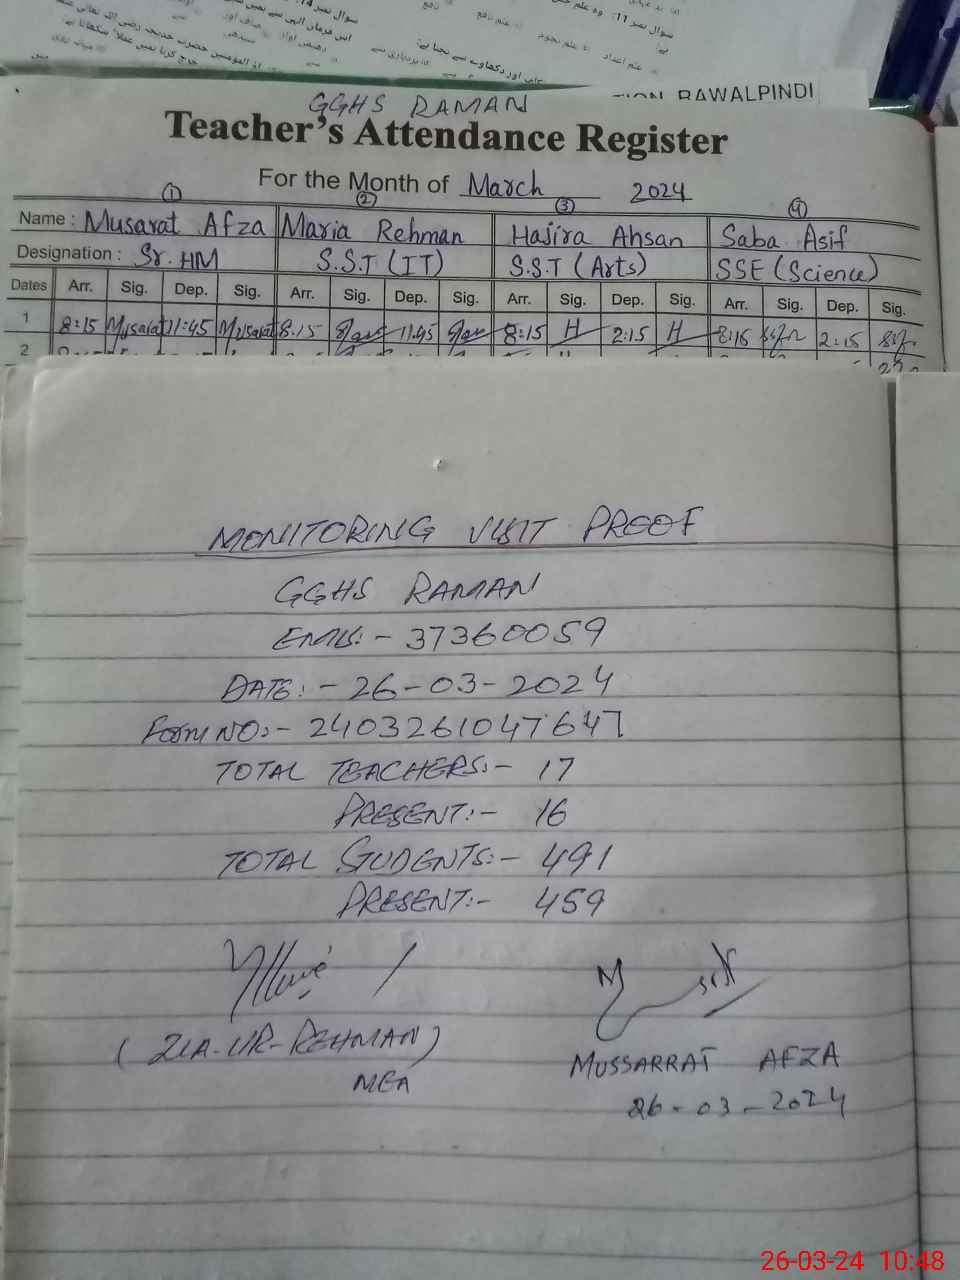 سوال نمبر 11:
GGHS RAMAN
RAWALPINDI
Teacher's Attendance Register
For the Month of March 2024
1 2 3 4
Name : Musarat Afza Maria Rehman Hajira Ahsan Saba Asif
Designation : Sr. HM S.S.T (IT) S.S.T (Arts) SSE (Science)
Dates Arr. Sig. Dep. Sig. Arr. Sig. Dep. Sig. Arr. Sig. Dep. Sig. Arr. Sig. Dep. Sig.
1 8:15 Musarat 11:45 Musarat 8:15 11:45 8:15 H 2:15 H 8:15 2:15
2
MONITORING VISIT PROOF
GGHS RAMAN
EMIS:- 37360059
DATE:- 26-03-2024
Form NO:- 2403261047647
TOTAL TEACHERS:- 17
PRESENT:- 16
TOTAL STUDENTS:- 491
PRESENT:- 459
(ZIA-UR-REHMAN)
MEA
MUSSARRAT AFZA
26-03-2024
26-03-24 10:48